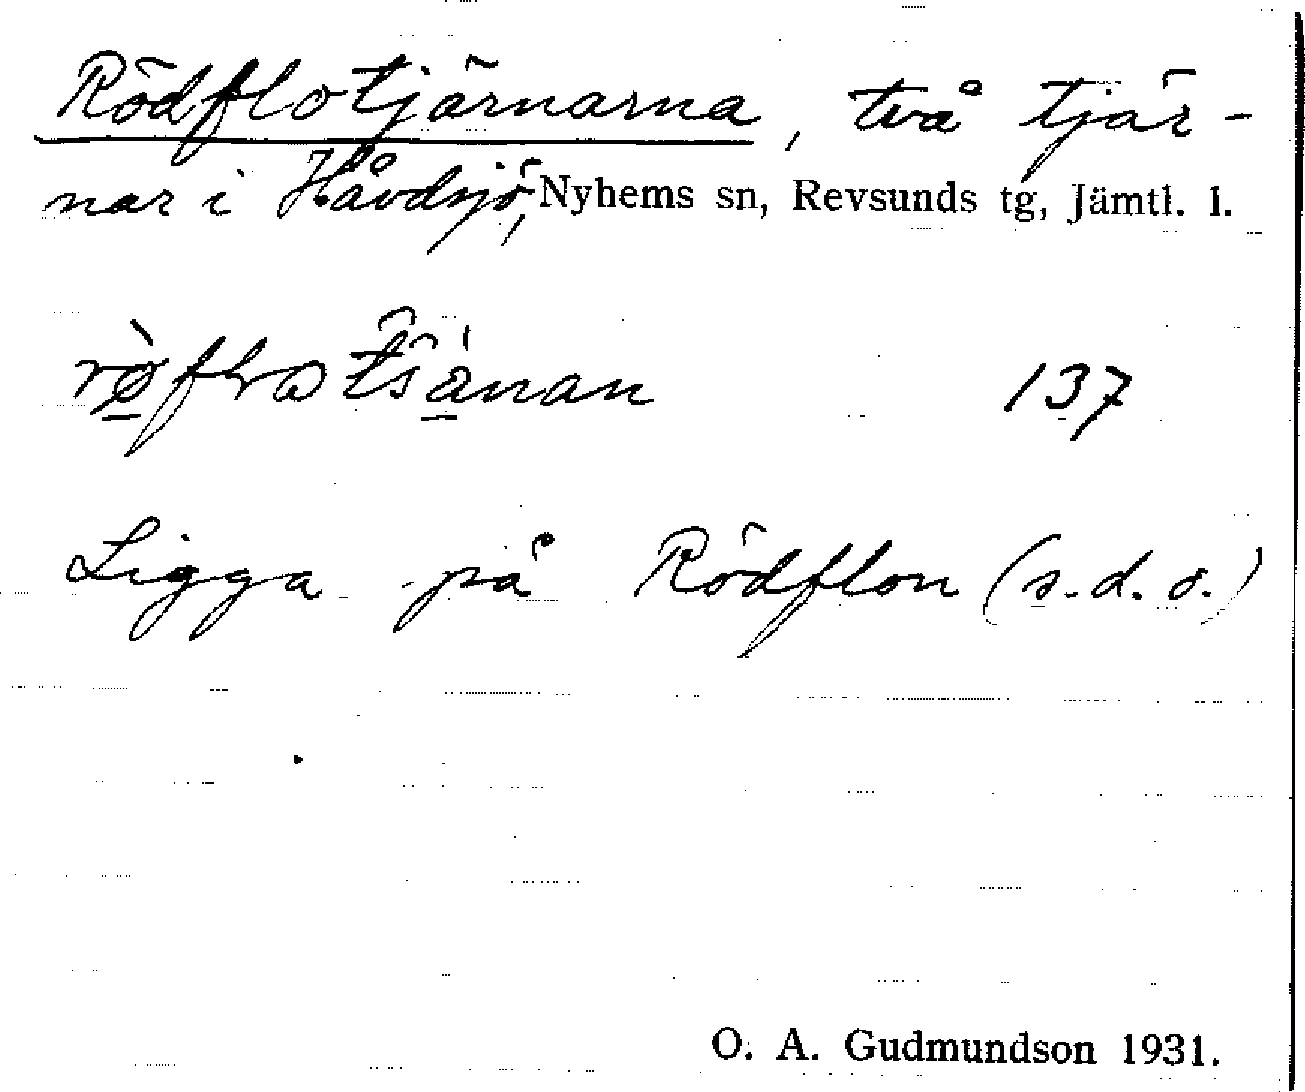 Rödflotjärnarna, två tjär-
nar i Håvdsjö, Nyhems sn, Revsunds tg, Jämtl. l.
137
Ligga på Rödflon (s.d.o.)
O. A. Gudmundson 1931.